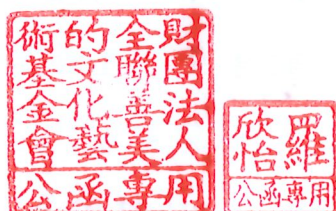 財團法人
全聯善美
的文化藝
術基金會
公函專用
羅
欣怡
公函專用